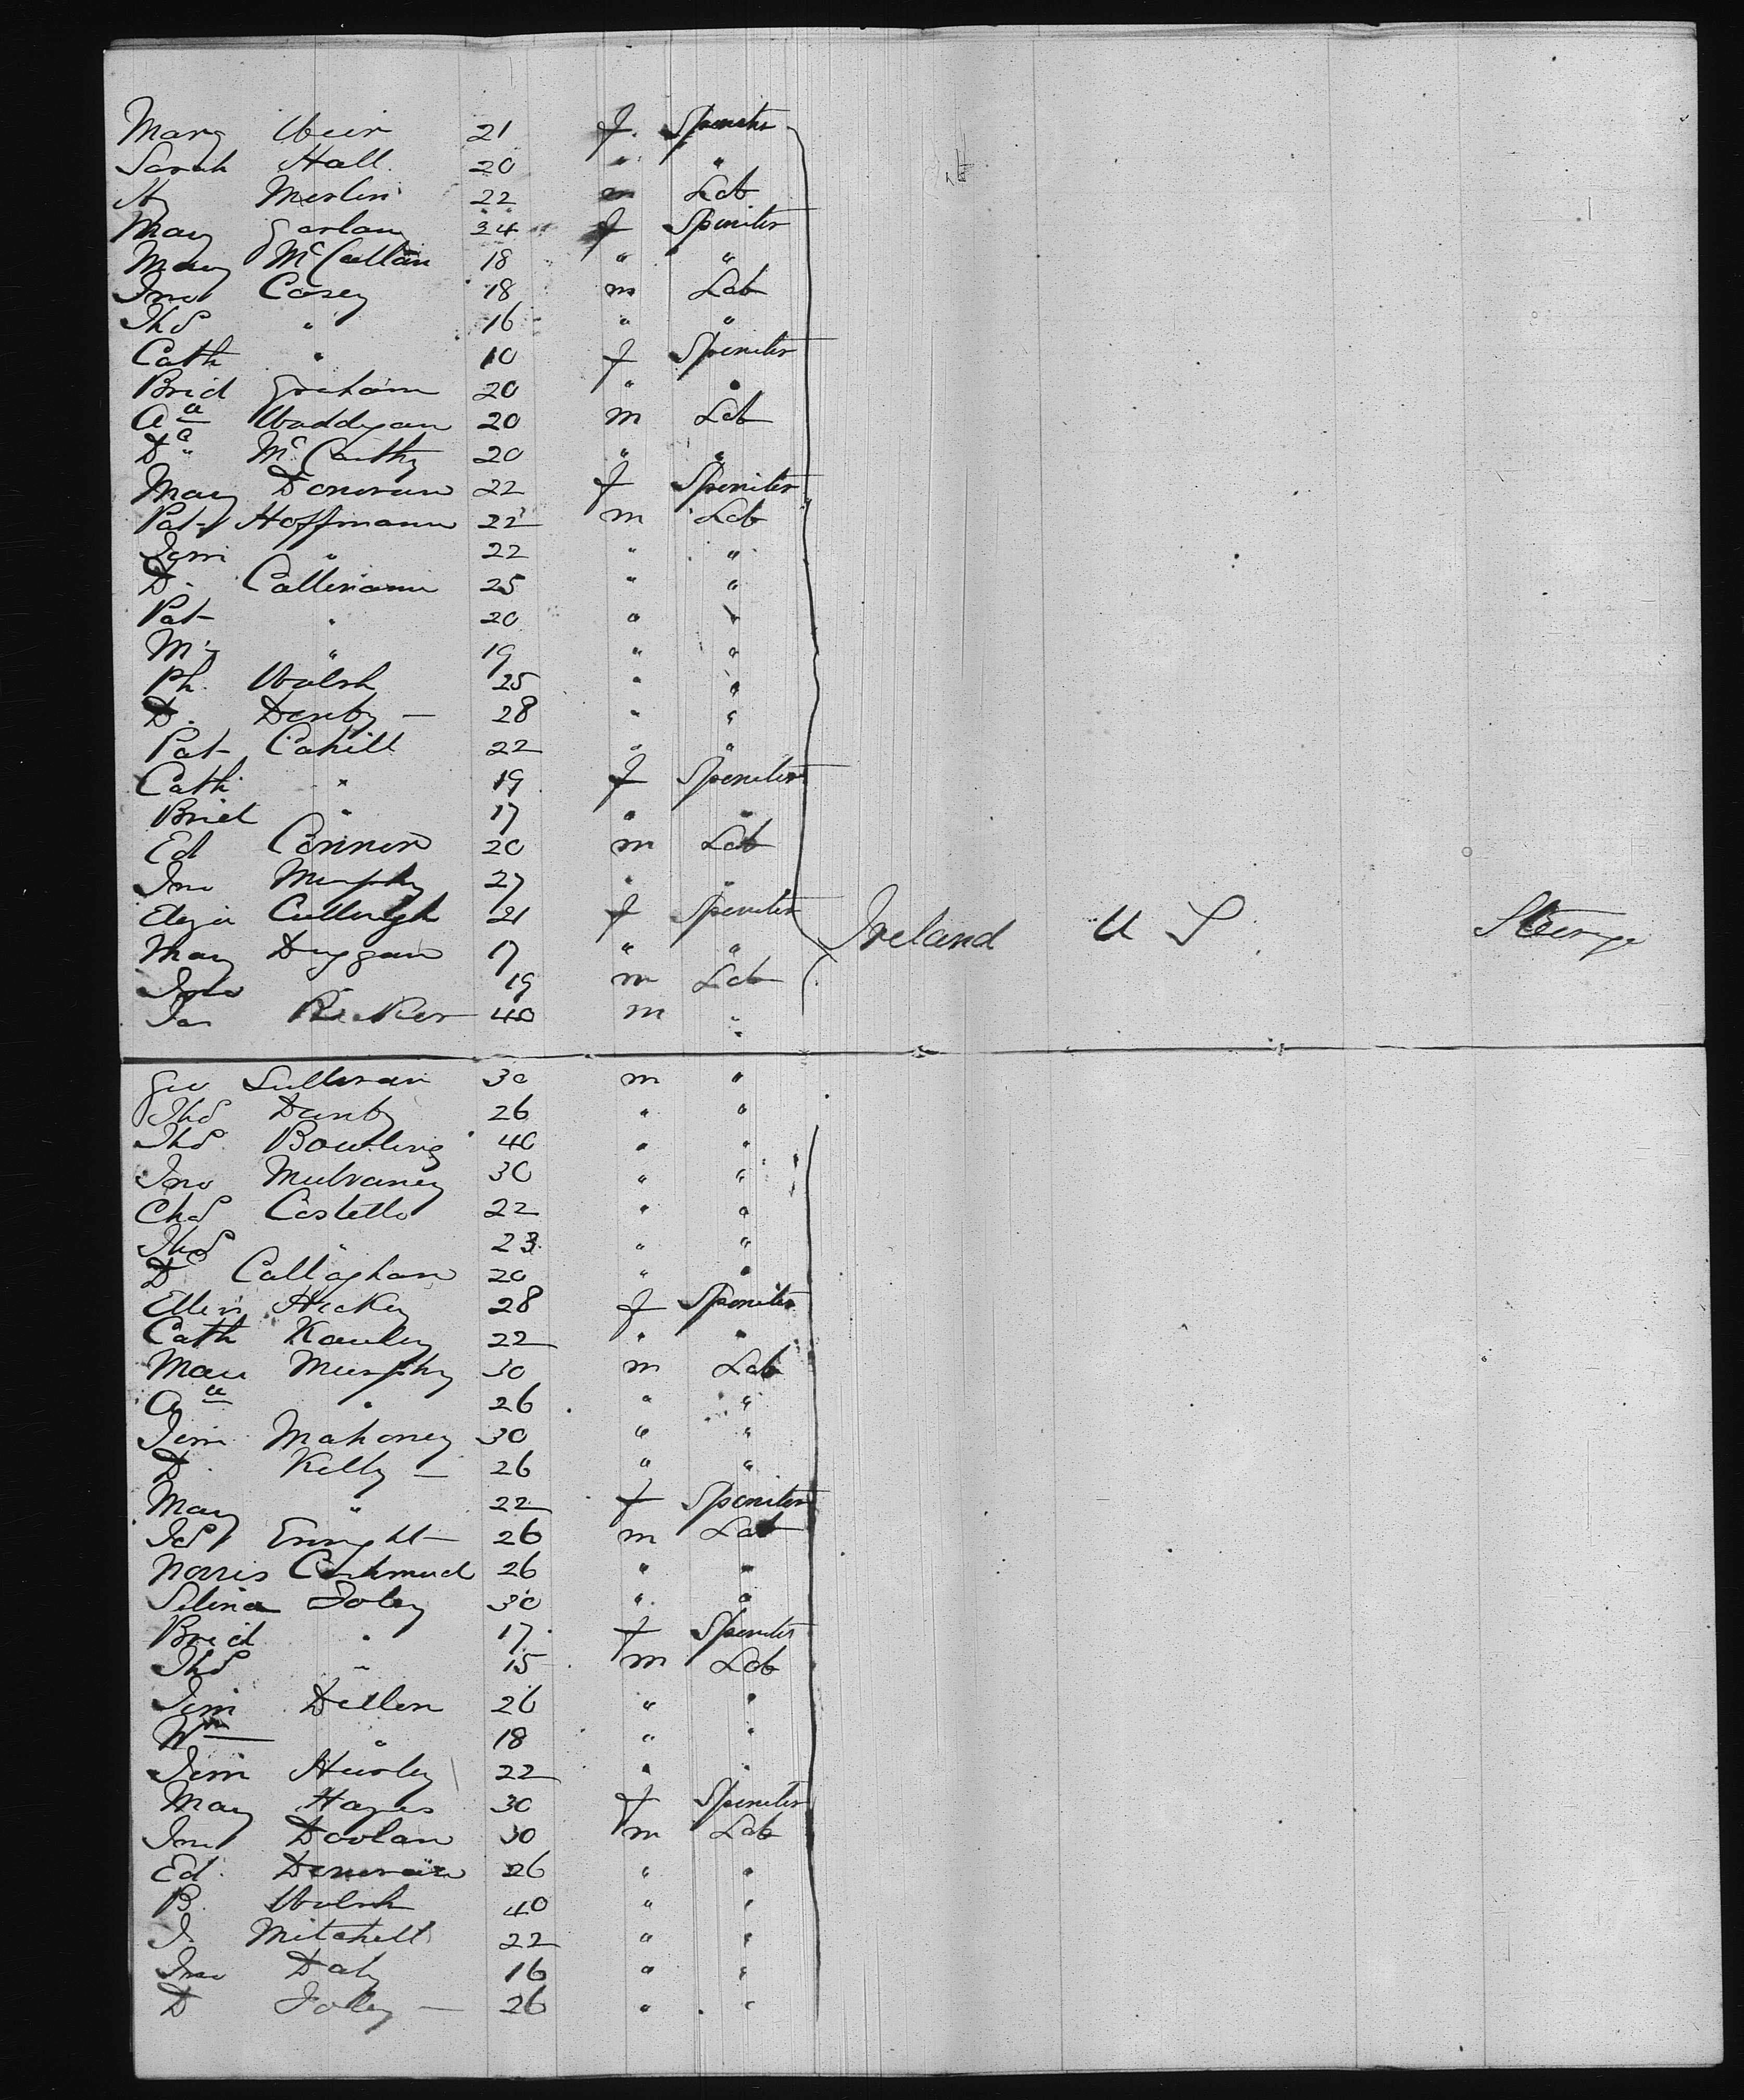 Mary Weir 21 f. Spinster
Sarah Hall 20 " "
Merlin 22 m Lab
Mary Garlan 24 f Spinster
Mary McCallan 18 " "
Jno Casey 18 m Lab
Thos " 16 " "
Cath " 10 f Spinster
Brid Graham 20 " "
Waddigan 20 m Lab
McCarthy 20 " "
Mary Donovan 22 f Spinster
Pat Hoffmann 22 m Lab
Jim " 22 " "
D. Callinann 25 " "
Pat " 20 " "
" 19 " "
Ph. Walsh 25 " "
D. Danby 28 " "
Pat Cahill 22 " "
Cath " 19 f Spinster
Brid " 17 " "
Ed Connor 20 m Lab
Jno Murphy 27 " "
Eliza Cullough 21 f Spinster Ireland U S Steerage
Mary Duggan 17 " "
Jno " 19 m Lab
Jas 40 m "
Geo Sullivan 30 m "
Thos Danby 26 " "
Thos Bowling 40 " "
Jno Mulvaney 30 " "
Chas Costello 22 " "
Thos " 23 " "
D Callaghan 20 " "
Ellen Hickey 28 f Spinster
Cath Kauley 22 " "
Mau Murphy 30 m Lab
" 26 " "
Jim Mahoney 30 " "
D. Kelly 26 " "
Mary " 22 f Spinster
Jas Enright 26 m Lab
Norris 26 " "
Selina Foley 30 " "
Brid " 17 f Spinster
Thos " 15 m Lab
Jim Dillon 26 " "
Wm " 18 " "
Jim Hurley 22 " "
Mary Hayes 30 f Spinster
Jno Doolan 30 m Lab
Ed. Donovan 26 " "
B. Walsh 40 " "
J. Mitchell 22 " "
Jno Daly 16 " "
D Foley 26 " "